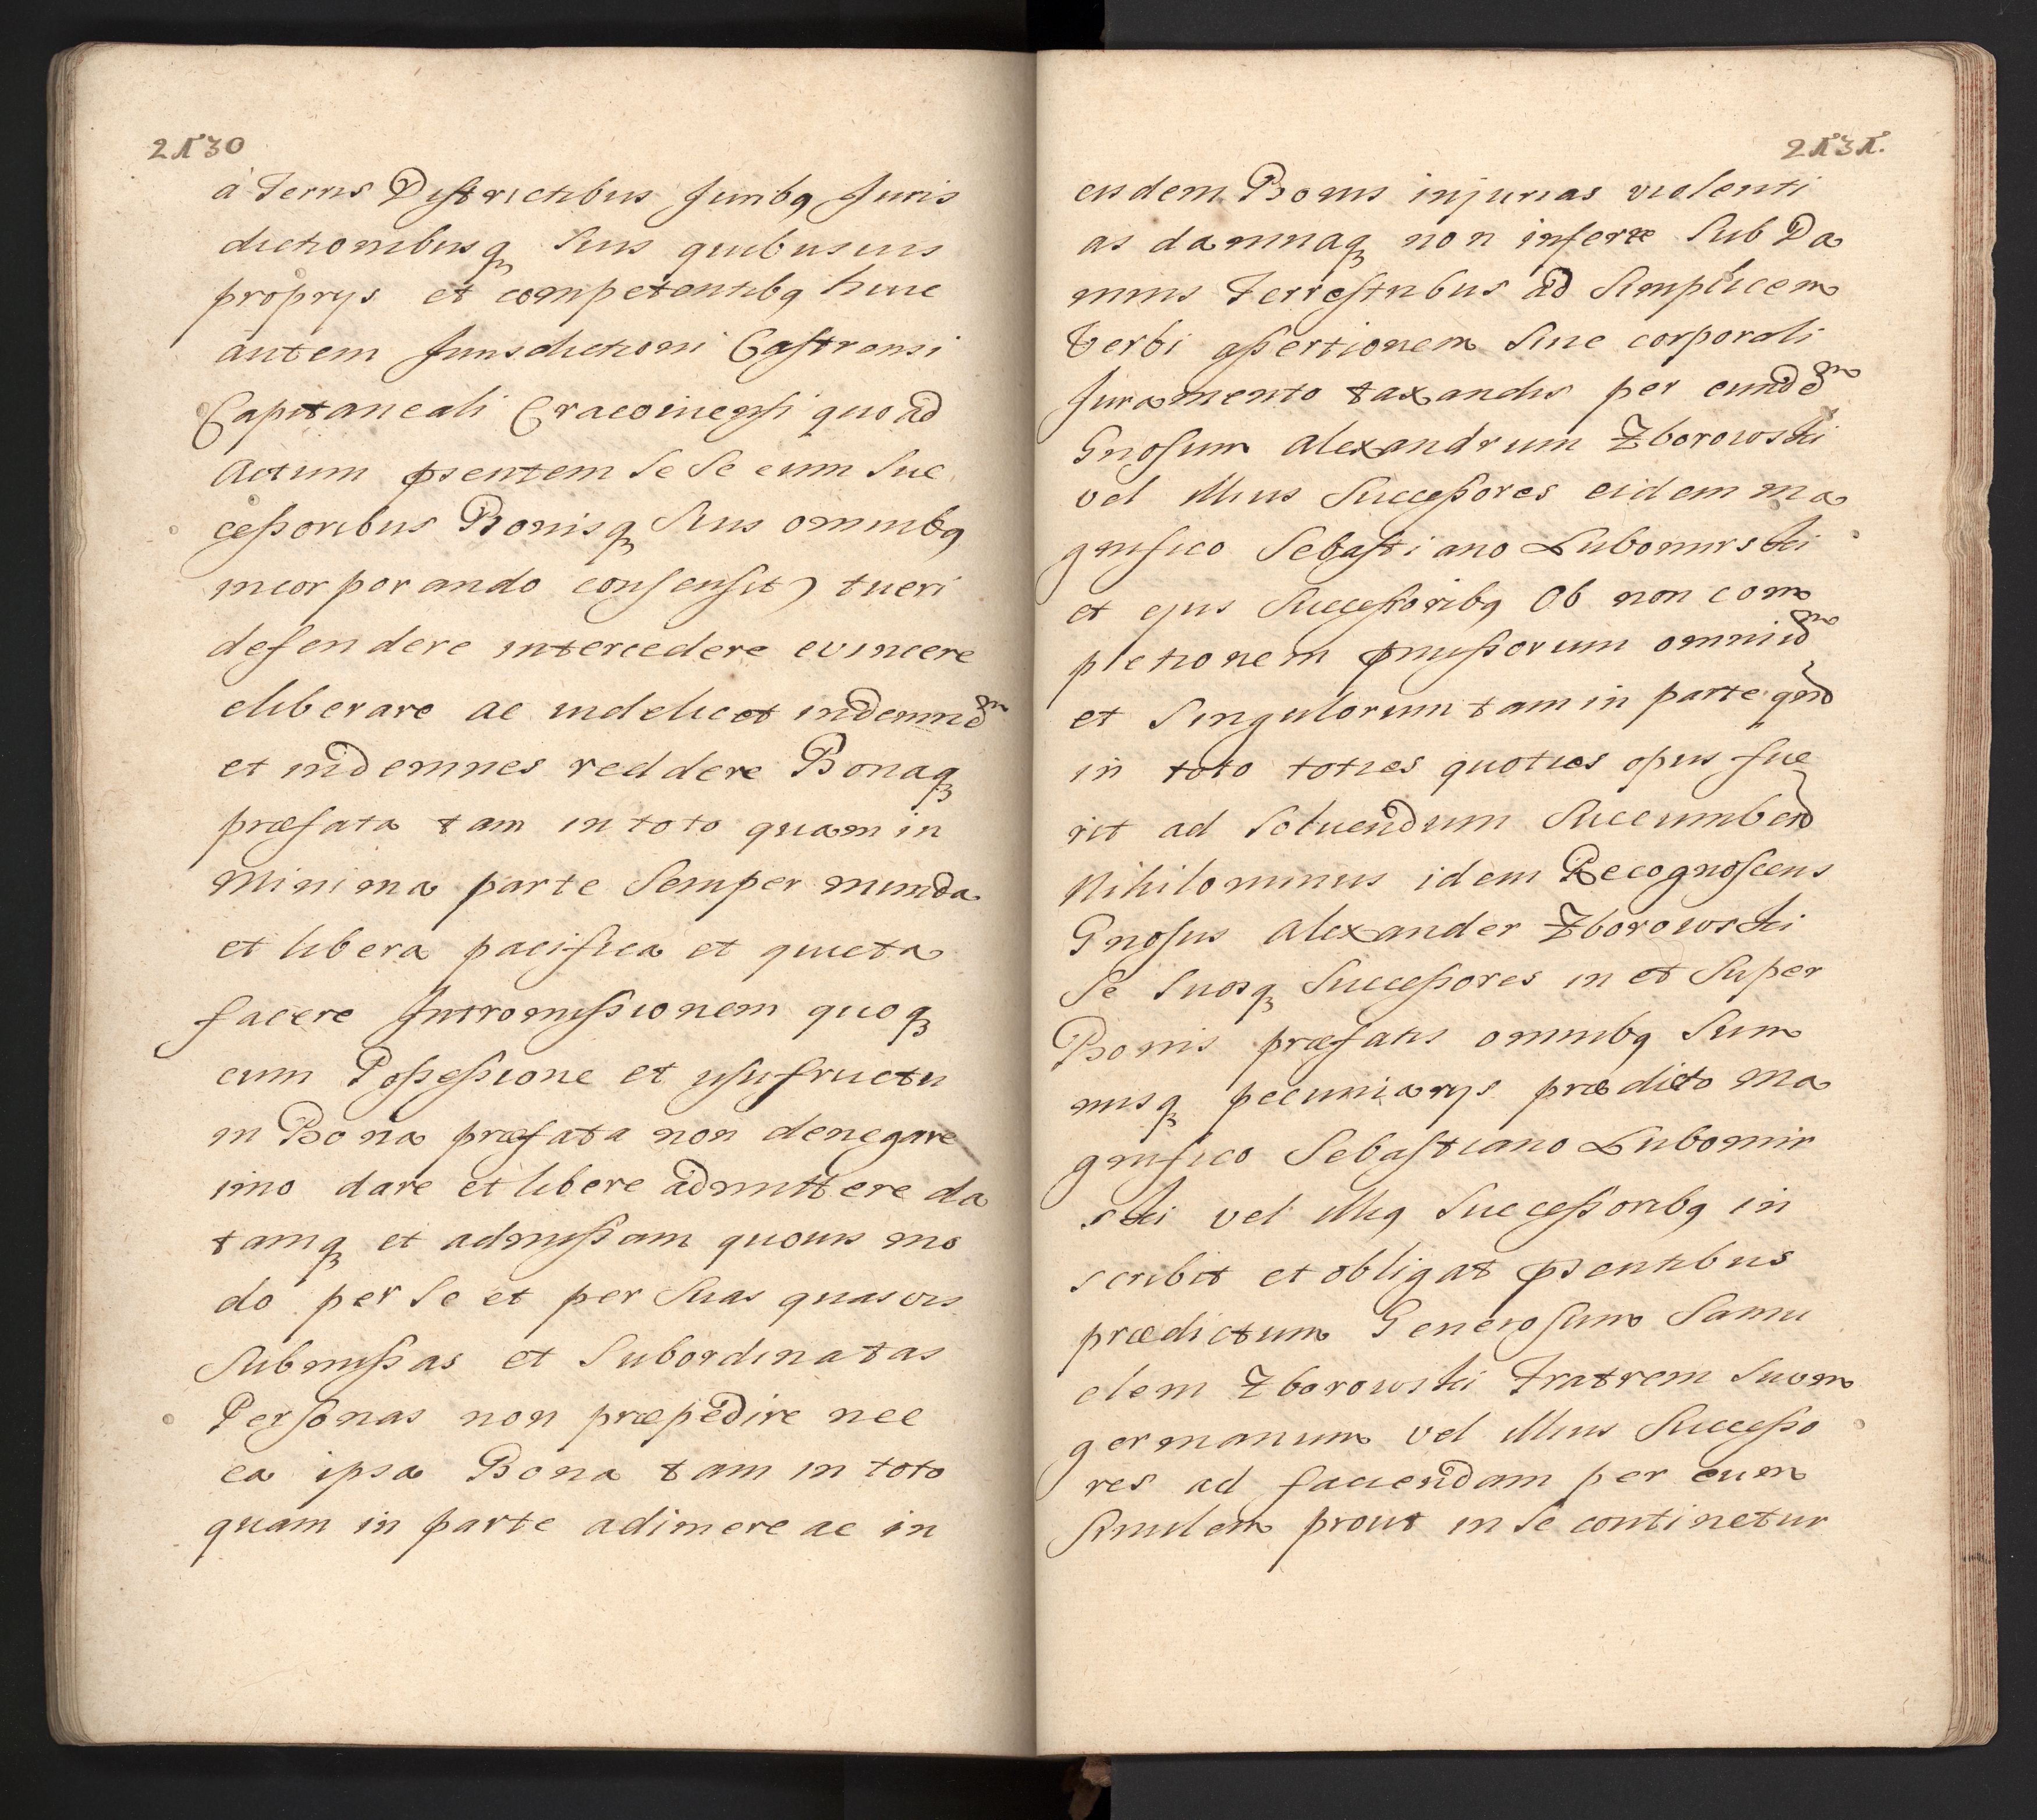 2130
à Terris Districtibus Juribq Juris
dictionibusq suis quibusuis
proprys et competentibq huic
autem Jurisdictioni Castrensi
Capitaneali Cracoviensi quo ad
Actum pſentem Se Se cum Suc
ceſsoribus Bonisq Suis omnibq
incorporando conſenſit) tueri
defendere intercedere evincere
eliberare ac indelicet indemnē
et indemnes reddere Bonaq
præfata tam in toto quam in
minima parte Semper munda
et libera pacifica et quieta
facere Intromiſsionem quoq
cum Poſseſsione et uſufructu
in Bona præfata non denegare
imo dare et libere admittere da
tamq et admiſsam quouis mo
do per Se et per Suas quasvis
Submiſsas et Subordinatas
Perſonas non præpedire nec
ea ipsa Bona tam in toto
quam in parte adimere ac in
2131.
eisdem Bonis injurias violenti
as damnaq non inferre Sub Da
mnis Terreſtribus ad Simplicem
Verbi aſsertionem Sine corporali
Juramento taxandis per eundē
Gnoſum Alexandrum Zborowski
vel illius Succeſsores eidem ma
gnifico Sebaſtiano Lubomirski
et ejus Succeſsoribq Ob non com
pletionem pmiſsorum omniū
et Singulorum tam in parte qm
in toto toties quoties opus fue
rit ad Solvendum Succumbēd
Nihilominus idem Recognoſcens
Gnoſus Alexander Zborowski
Se Suosq Succeſsores in et Super
Bonis præfatis omnibq Sum
misq pecuniarys prædicto Ma
gnifico Sebaſtiano Lubomir
ski vel illiq Succeſsoribq in
scribit et obligat pſentibus
prædictum Generoſum Samu
elem Zborowski Fratrem Suum
germanum vel illius Succeſso
res ad faciendam per eum
Similem prout in Se continetur